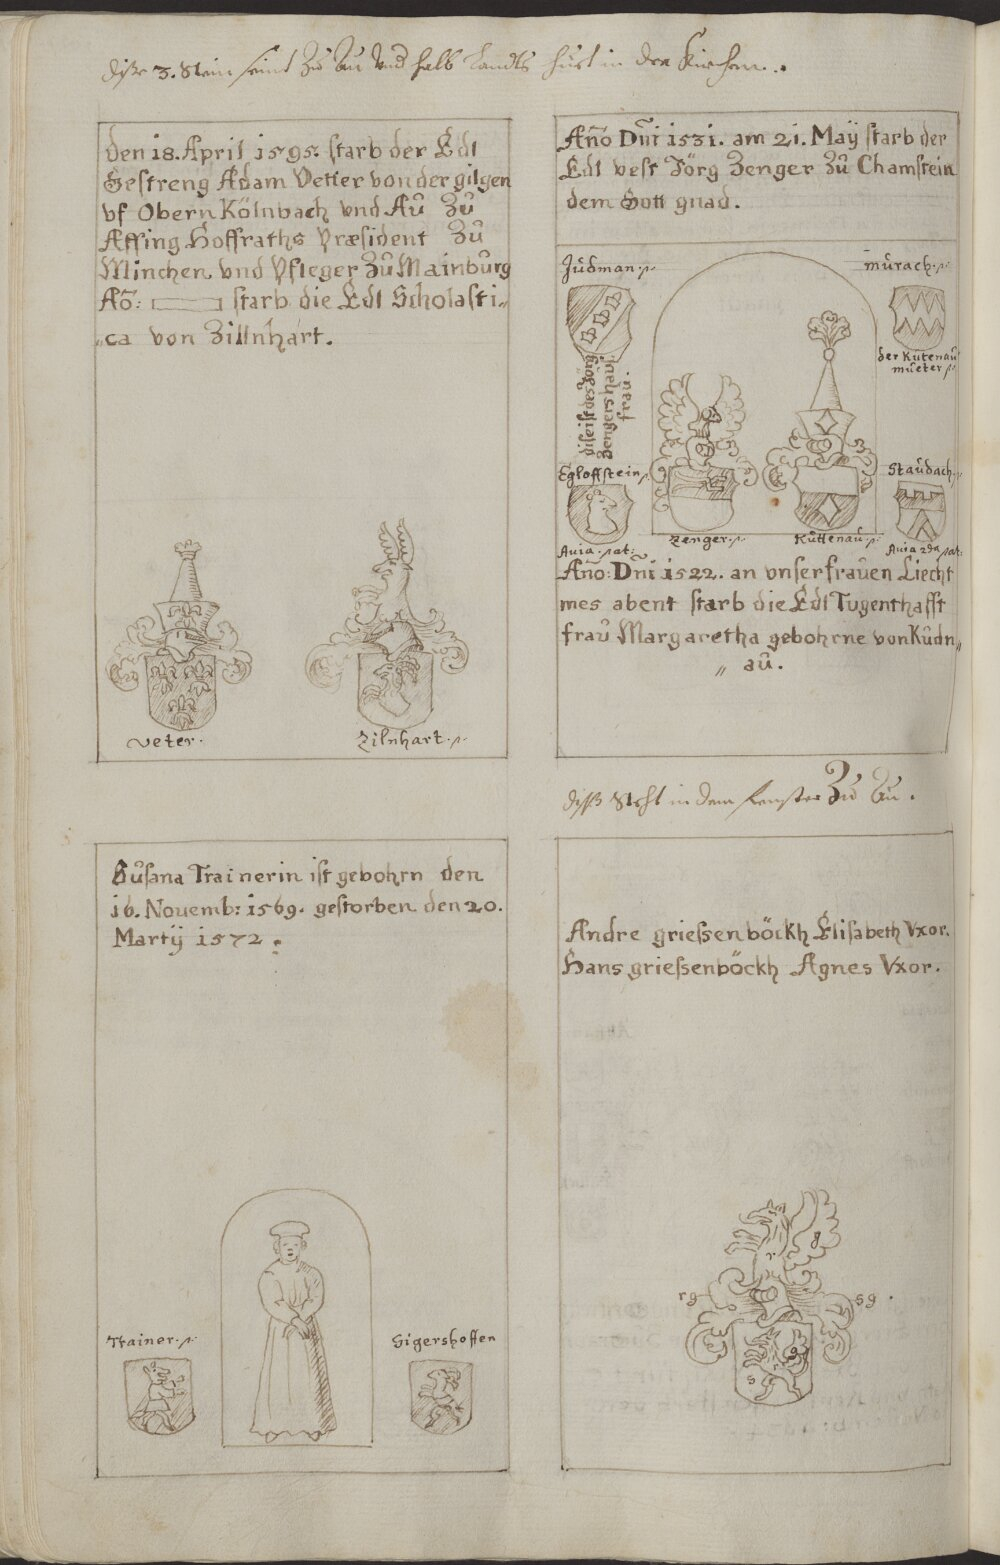 diße 3. Stein seint Zu Au und halb Landtshuet in der Kirchen.
den 18. April 1595. starb der Edl
Gestreng Adam Vetter von der gilgen
vf Obern Kölnbach vnd Aŭ Zŭ
Æffing Hoffraths Præsident Zŭ
München vnd Pfleger Zŭ Mainbŭrg
Aõ: starb die Edl Scholasti„
„ca von Zillnhart.
veter.
Zilnhart.
Año Dñi 1531. am 21. Maÿ starb der
Edl vest Jörg Zenger Zŭ Chamstein
dem Gott gnad.
Jŭdman.
mŭrach.
der Kŭtenaŭ
mŭeter
dise ist des Jörg
Zengers haus
fraŭ.
Egloffstein
Staŭdach.
Auia. pat:
Zenger.
Kŭttenaŭ.
Auia 2da pat:
Año: Dñi 1522. an vnser fraŭen Liecht
mes abent starb die Edl Tugenthafft
fraŭ Margaretha gebohrne von Kŭdn„
„ aŭ.
diß Steht in dem fenster Zu Au.
Sŭsana Trainerin ist gebohrn den
16. Nouemb: 1569. gestorben den 20.
Martÿ 1572.
Trainer.
Sigershoffen
Andre griessenböckh Elisabeth Vxor.
Hans griessenböckh Agnes Vxor.
g
r
rg
sg.
g
r
s